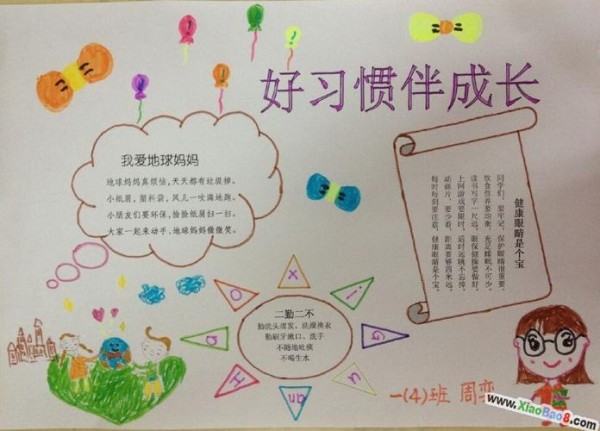 好习惯伴成长
我爱地球妈妈
地球妈妈真烦恼,天天都有垃圾掉。
小纸屑,塑料袋,风儿一吹满地跑。
小朋友们要环保,捡捡纸屑扫一扫。
大家一起来动手,地球妈妈微微笑。
健康眼睛是个宝
同学们,要牢记,保护眼睛很重要。
饮食营养要均衡,充足睡眠不可少。
读书写字一尺远,眼保健操要做好。
上网游戏要限时,适时远眺不忘掉。
动画片,要少看,距离要够四米远。
每时每刻要注意,健康眼睛是个宝。
H
a
O
x
i
G
二勤二不
勤洗头理发、洗澡换衣
勤刷牙漱口、洗手
不随地吐痰
不喝生水
一(4)班 周
www.XiaoBao8.com